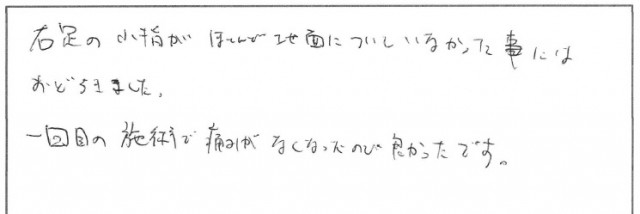 右足の小指がほとんど地面についていなかった事には
おどろきました。
一回目の施術で痛みがなくなったので良かったです。